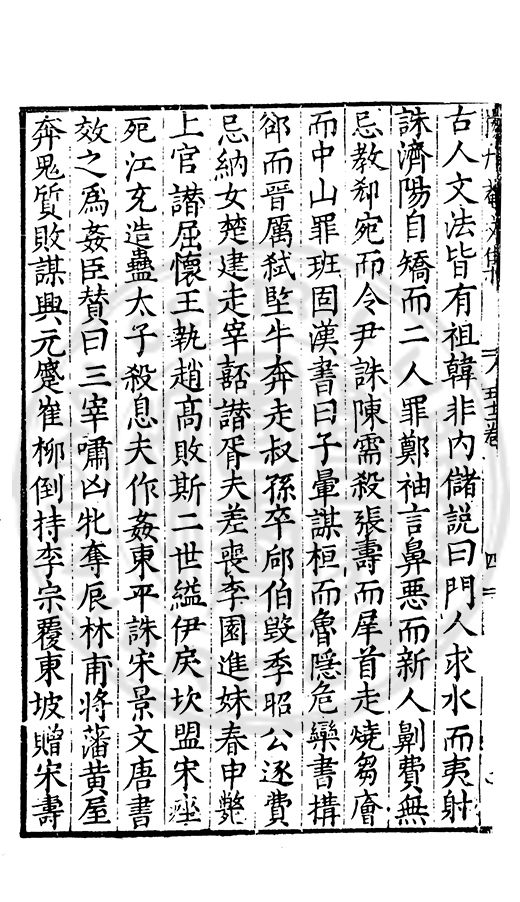 古人文法皆有祖韓非內儲說曰門人求水而夷射
誅濟陽自矯而二人罪鄭袖言鼻悪而新人劓費無
忌教郄宛而令尹誅陳需殺張壽而犀首走燒芻廥
而中山罪班固漢書曰子暈謀桓而魯隱危欒書搆
郤而晉厲弑竪牛奔走叔孫卒郈伯毀季昭公逐費
忌納女楚建走宰嚭譖胥夫差喪李園進妹春申斃
上官譖屈懷王執趙高敗斯二世縊伊戾坎盟宋痤
死江充造蠱太子殺息夫作姦東平誅宋景文唐書
效之爲姦臣贊曰三宰嘯凶牝奪辰林甫將藩黃屋
奔鬼質敗謀興元蹙崔柳倒持李宗覆東坡贈宋壽